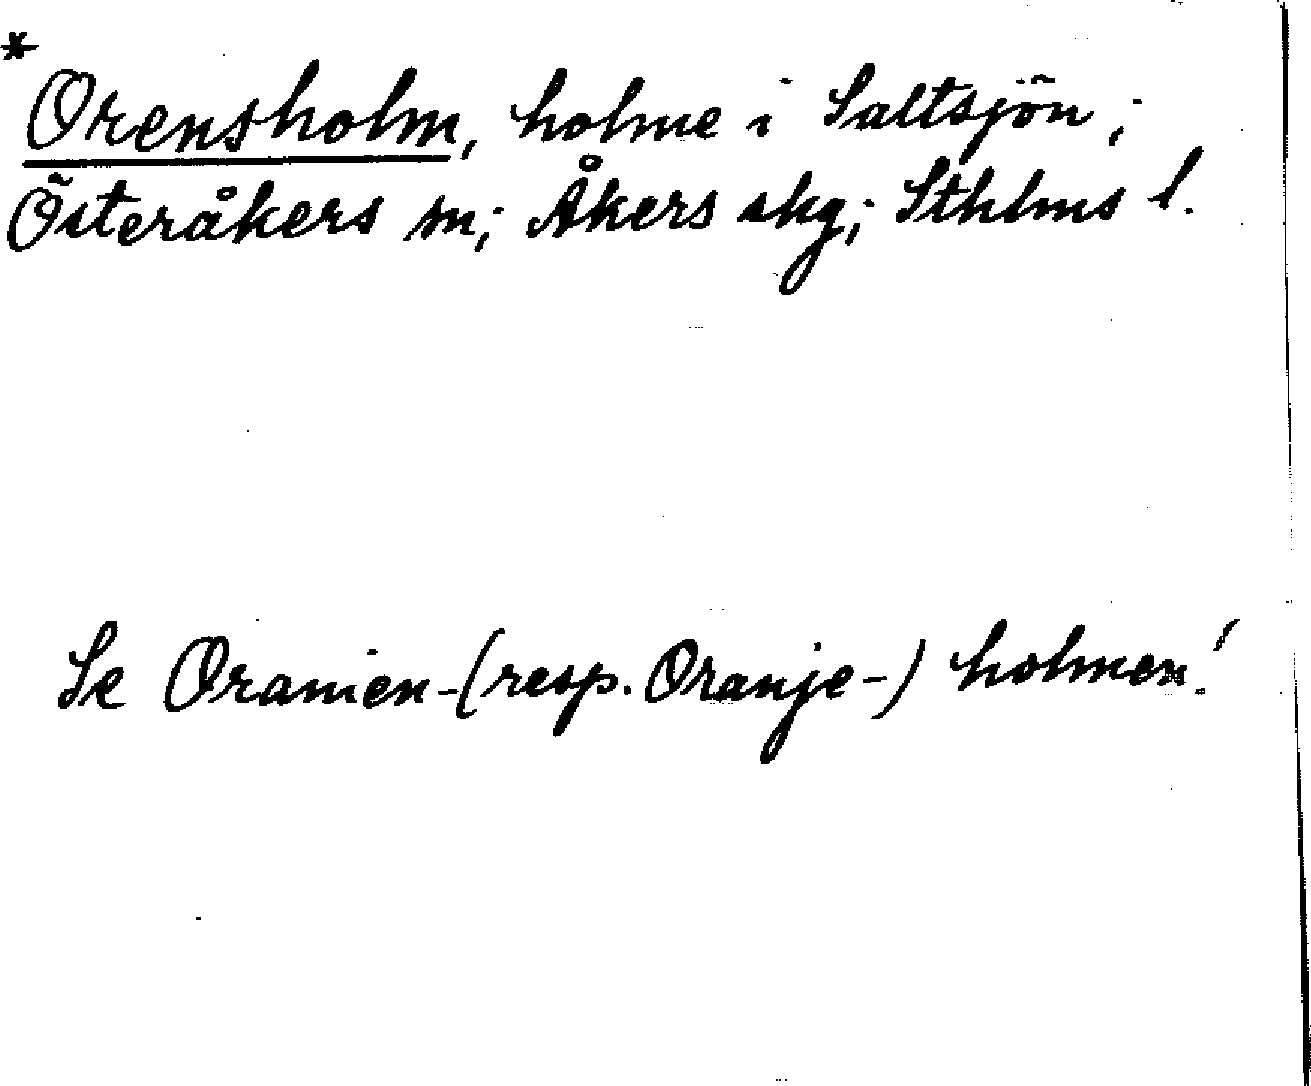 *
Orensholm, holme i Saltsjön;
Österåkers sn; Åkers skg; Sthlms l.
Se Oranien-(resp. Oranje-) holmen!